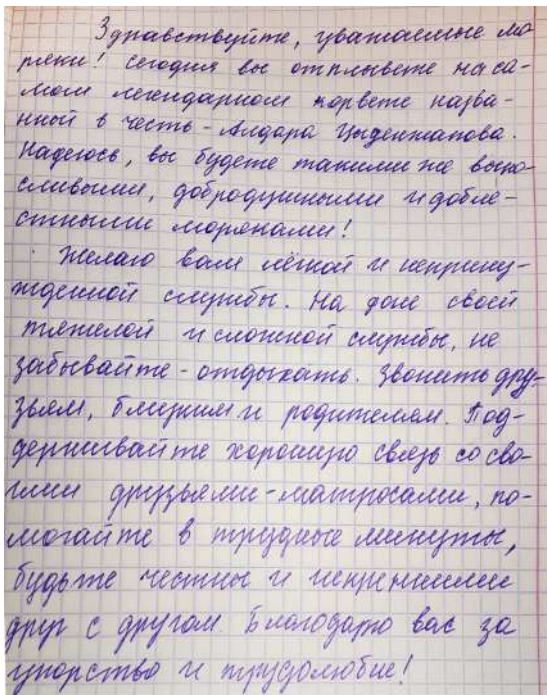 Здравствуйте, уважаемые мо
ряки! Сегодня вы отплывете на са-
мом легендарном корвете назва-
нной в честь - Алдара Цыденжапова.
Надеюсь, вы будете такими же выно-
сливыми, добродушными и добле-
стными моряками!
Желаю вам лёгкой и неприну-
жденной службы. На фоне своей
тяжелой и сложной службы, не
забывайте - отдыхать. Звонить дру-
зьям, близким и родителям. Под-
держивайте хорошую связь со сво-
ими друзьями-матросами, по-
могайте в трудные минуты,
будьте честны и искренними
друг с другом. Благодарю вас за
упорство и трудолюбие!